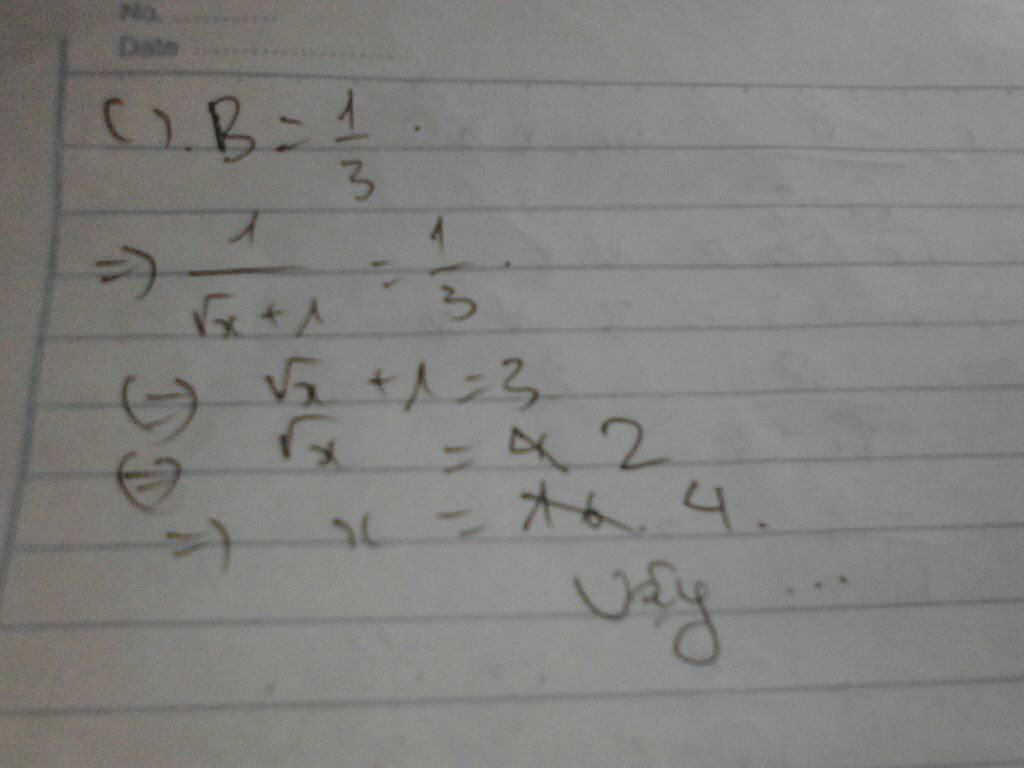 No. ............
Date ........................
C). B = 1/3.
=> 1/(√x + 1) = 1/3.
<=> √x + 1 = 3
<=> √x = 2
=> x = 4.
Vậy ...